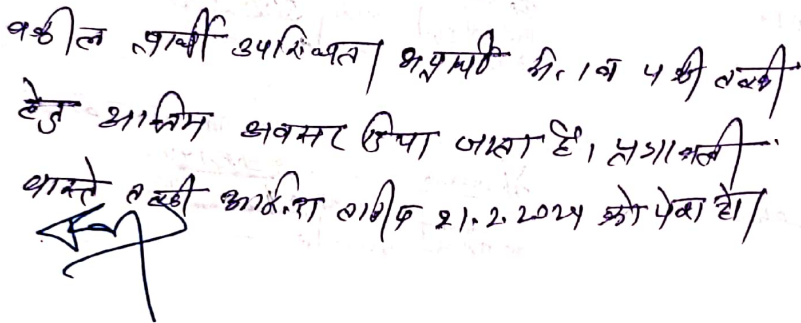 वकील प्रार्थी उपस्थित। अप्रार्थी सं. 1 व 4 की तलबी
हेतु अन्तिम अवसर दिया जाता है। पत्रावली
वास्ते तलबी तारीख 21.2.2024 को पेश हो।